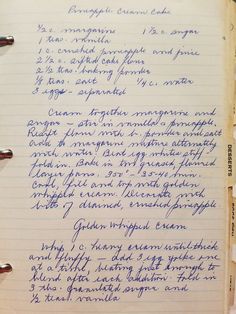 Pineapple Cream Cake
1/2 c. margarine 1 1/2 c. sugar
1 teas. vanilla
1 c. crushed pineapple and juice
2 1/2 c. sifted cake flour
2 1/2 teas. baking powder
1/4 teas. salt 1/4 c. water
3 eggs - separated
Cream together margarine and
sugar - stir in vanilla & pineapple.
Resift flour with b. powder and salt
add to margarine mixture alternately
with water. Beat egg whites stiff -
fold in. Bake in two greased, floured
layer pans. 350° - 35-40 min.
Cool, fill and top with golden
whipped cream. Decorate with
bits of drained, crushed pineapple
Golden Whipped Cream
Whip 1 c. heavy cream until thick
and fluffy - add 3 egg yokes one
at a time, beating just enough to
blend after each addition. Fold in
3 tbs. granulated sugar and
1/2 teas. vanilla
DESSERTS